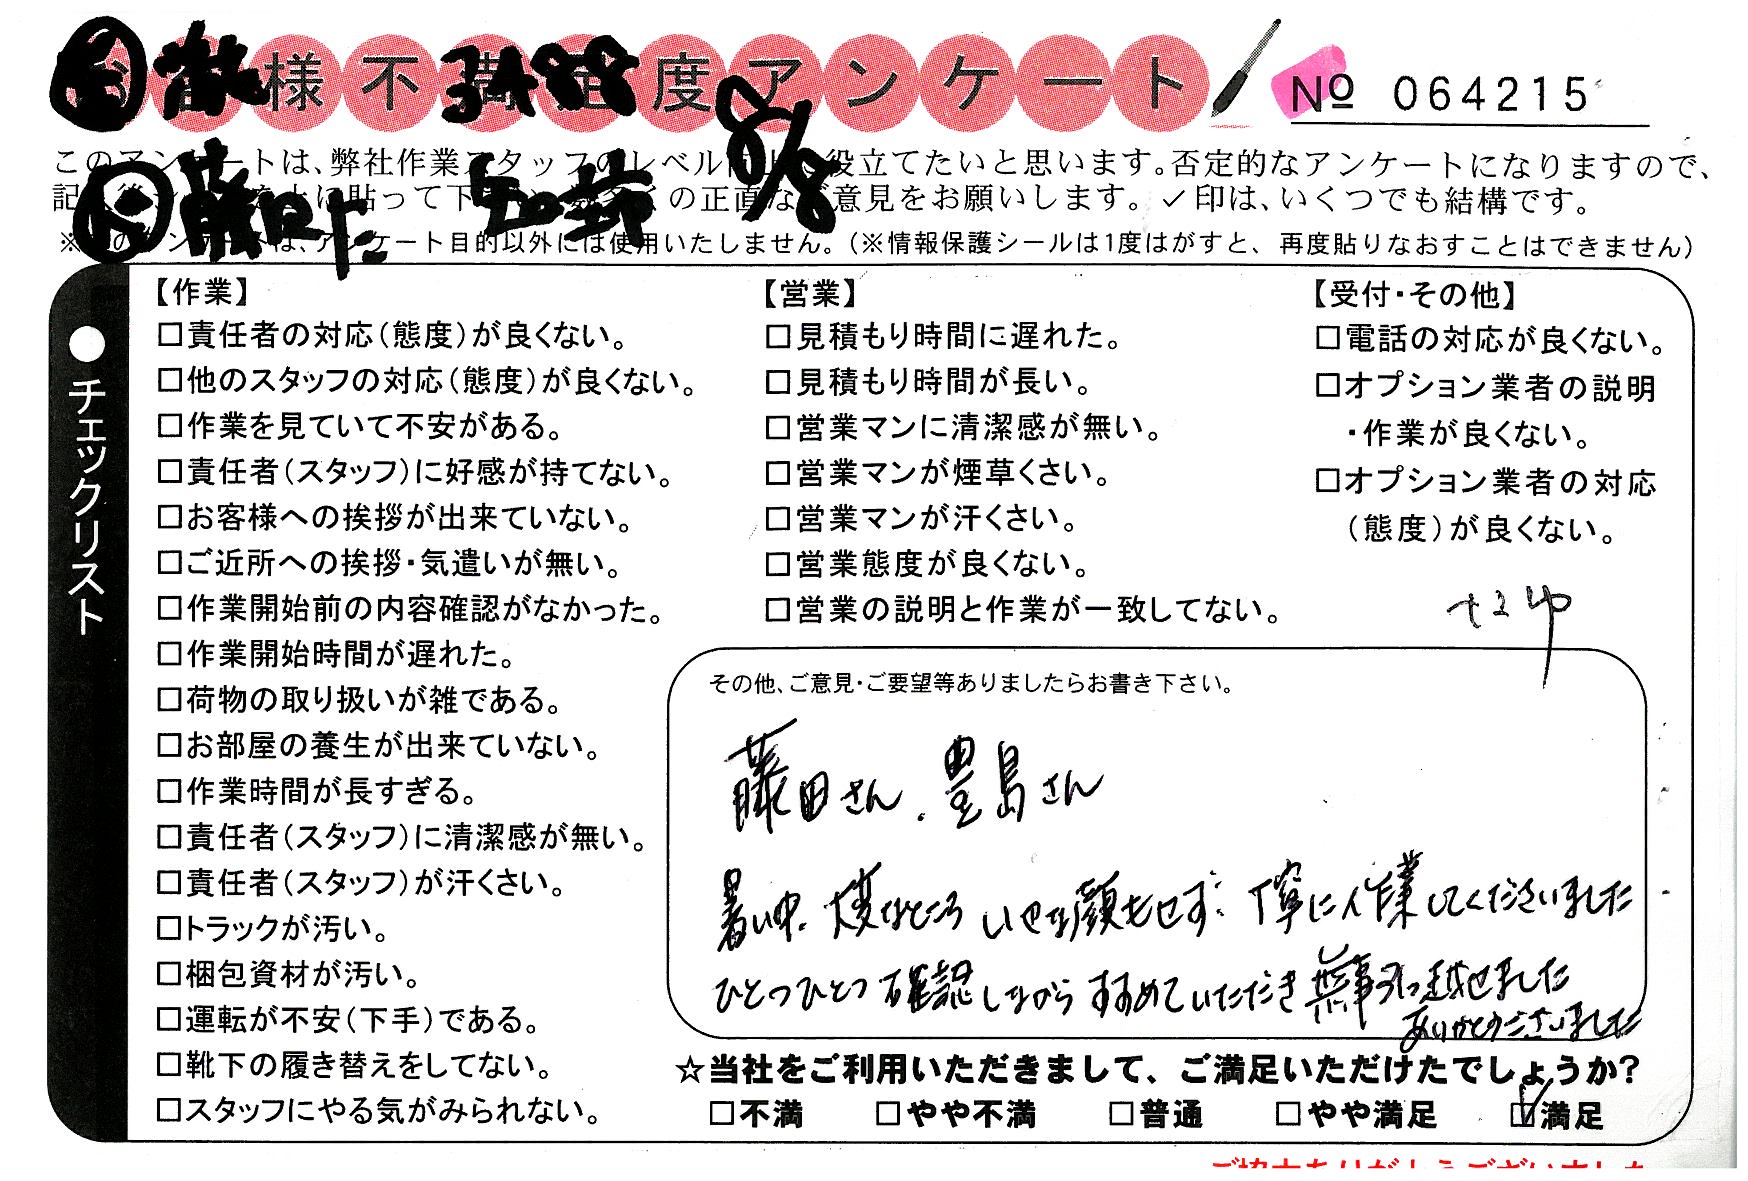 様不満足度アンケート
№ 064215
8/8
このアンケートは、弊社作業スタッフのレベル向上に役立てたいと思います。否定的なアンケートになりますので、
に貼って下 の正直なご意見をお願いします。✓印は、いくつでも結構です。
アンケート目的以外には使用いたしません。（※情報保護シールは1度はがすと、再度貼りなおすことはできません）
●チェックリスト
【作業】
□責任者の対応（態度）が良くない。
□他のスタッフの対応（態度）が良くない。
□作業を見ていて不安がある。
□責任者（スタッフ）に好感が持てない。
□お客様への挨拶が出来ていない。
□ご近所への挨拶・気遣いが無い。
□作業開始前の内容確認がなかった。
□作業開始時間が遅れた。
□荷物の取り扱いが雑である。
□お部屋の養生が出来ていない。
□作業時間が長すぎる。
□責任者（スタッフ）に清潔感が無い。
□責任者（スタッフ）が汗くさい。
□トラックが汚い。
□梱包資材が汚い。
□運転が不安（下手）である。
□靴下の履き替えをしてない。
□スタッフにやる気がみられない。
【営業】
□見積もり時間に遅れた。
□見積もり時間が長い。
□営業マンに清潔感が無い。
□営業マンが煙草くさい。
□営業マンが汗くさい。
□営業態度が良くない。
□営業の説明と作業が一致してない。
【受付・その他】
□電話の対応が良くない。
□オプション業者の説明
・作業が良くない。
□オプション業者の対応
（態度）が良くない。
その他、ご意見・ご要望等ありましたらお書き下さい。
藤田さん、豊島さん
暑い中、大変なところ いやな顔もせず、丁寧に作業してくださいました
ひとつひとつ確認しながらすすめていただき無事引っ越せました
ありがとうございました
☆当社をご利用いただきまして、ご満足いただけたでしょうか?
□不満 □やや不満 □普通 □やや満足 ☑満足
ご協力ありがとうございました